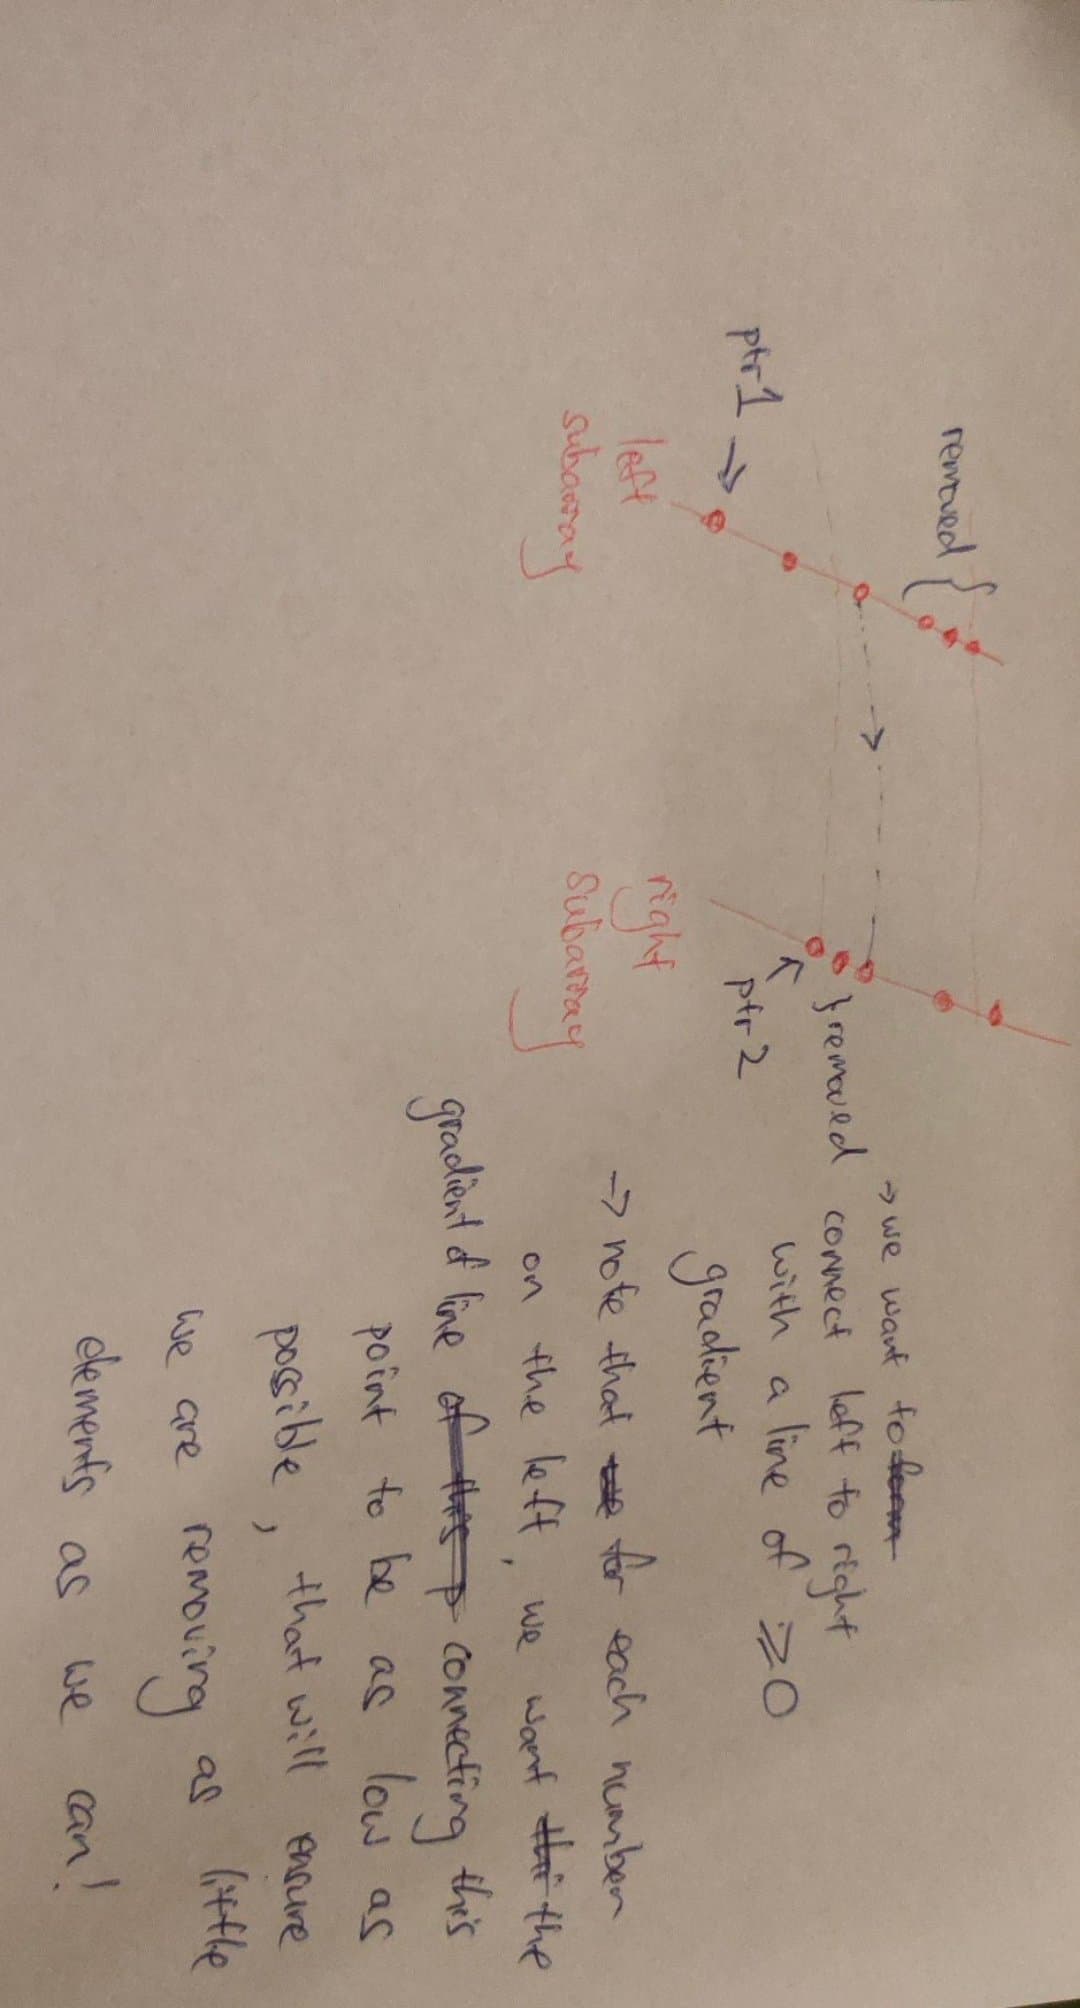 removed {
ptr1 →
left
subarray
right
subarray
ptr 2
} removed
→ we want to form
connect left to right
with a line of ≥0
gradient
→ note that for each number
on the left, we want the
gradient of line of this p connecting this
point to be as low as
possible, that will ensure
we are removing as little
elements as we can!